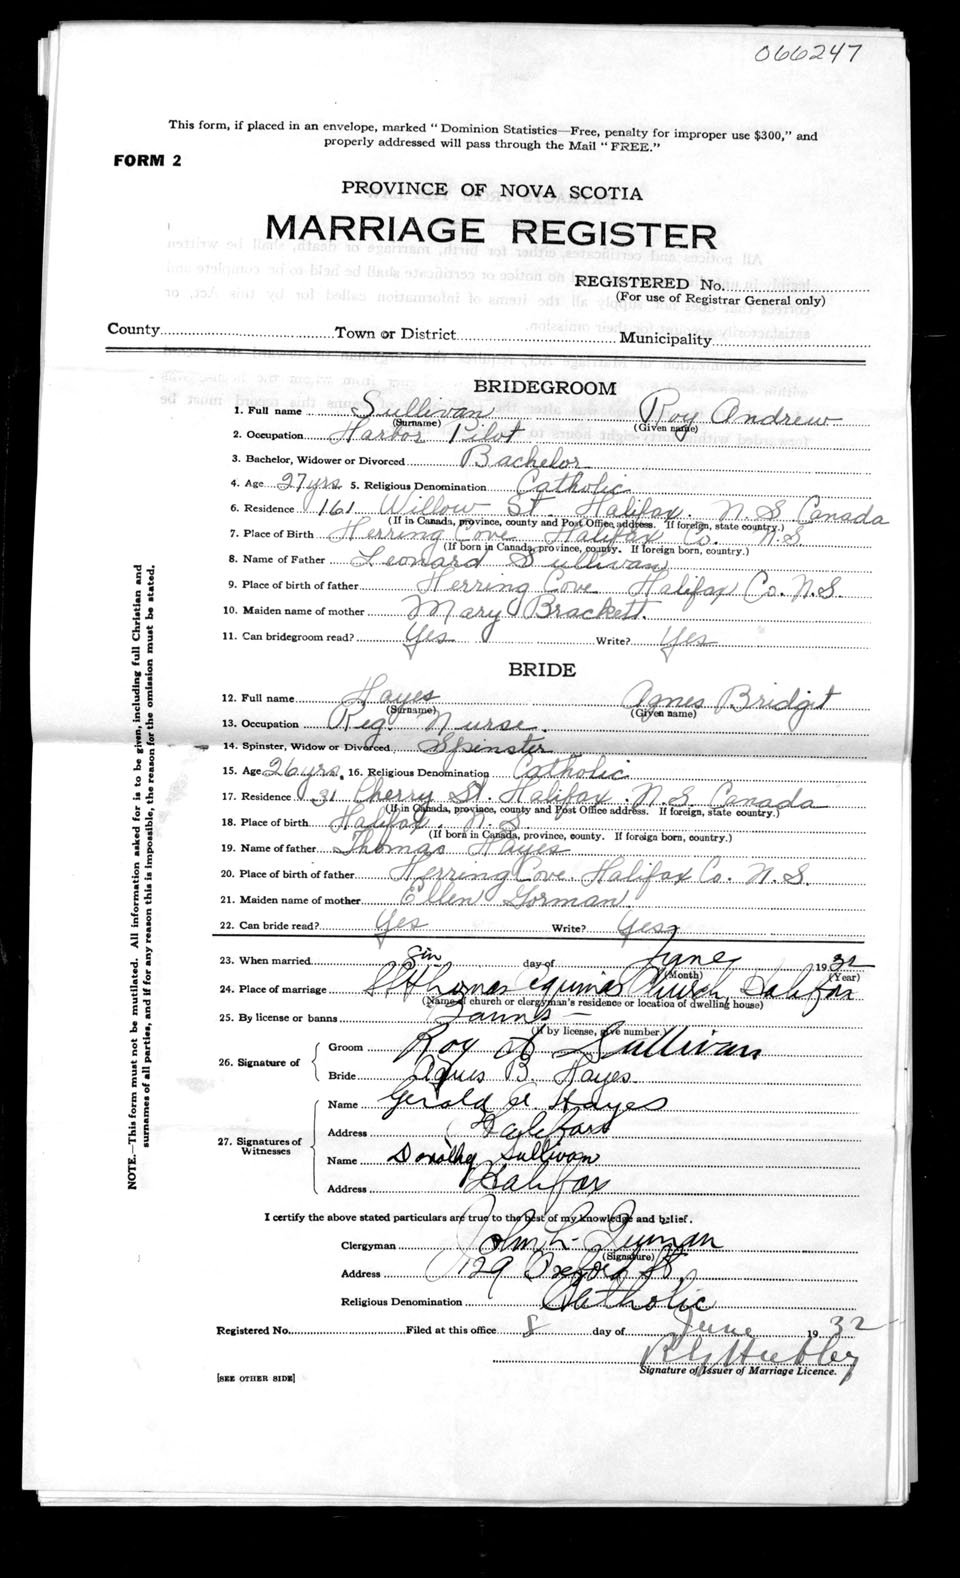 066247
This form, if placed in an envelope, marked "Dominion Statistics—Free, penalty for improper use $300," and
properly addressed will pass through the Mail "FREE."
FORM 2
PROVINCE OF NOVA SCOTIA
MARRIAGE REGISTER
REGISTERED No.
(For use of Registrar General only)
County Town or District Municipality
BRIDEGROOM
1. Full name Sullivan Roy Andrew
(Surname) (Given name)
2. Occupation Harbor Pilot
3. Bachelor, Widower or Divorced Bachelor
4. Age 27 yrs 5. Religious Denomination Catholic
6. Residence 161 Willow St. Halifax. N.S Canada
(If in Canada, province, county and Post Office address. If foreign, state country.)
7. Place of Birth Herring Cove Halifax Co. N.S.
(If born in Canada, province, county. If foreign born, country.)
8. Name of Father Leonard Sullivan
9. Place of birth of father Herring Cove Halifax Co. N.S.
10. Maiden name of mother Mary Brackett.
11. Can bridegroom read? Yes Write? Yes
BRIDE
12. Full name Hayes Agnes Bridgit
(Surname) (Given name)
13. Occupation Reg. Nurse.
14. Spinster, Widow or Divorced Spinster
15. Age 26 yrs. 16. Religious Denomination Catholic
17. Residence 31 Cherry St. Halifax. N.S. Canada
(If in Canada, province, county and Post Office address. If foreign, state country.)
18. Place of birth Halifax. N.S.
(If born in Canada, province, county. If foreign born, country.)
19. Name of father Thomas Hayes
20. Place of birth of father Herring Cove. Halifax Co. N.S.
21. Maiden name of mother Ellen Gorman.
22. Can bride read? Yes Write? Yes
23. When married Six day of June 1932
(Month) (Year)
24. Place of marriage St Thomas Aquinas Church, Halifax
(Name of church or clergyman's residence or location of dwelling house)
25. By license or banns Banns —
(If by license, give number)
26. Signature of Groom Roy A Sullivan
Bride Agnes B. Hayes.
27. Signatures of Witnesses Name Gerald Hayes
Address Halifax
Name Dorothy Sullivan
Address Halifax
I certify the above stated particulars are true to the best of my knowledge and belief.
Clergyman John L.
(Signature)
Address 129 Oxford St.
Religious Denomination Catholic
Registered No. Filed at this office 8 day of June 1932
Signature of Issuer of Marriage Licence.
[SEE OTHER SIDE]
NOTE.—This form must not be mutilated. All information asked for is to be given, including full Christian and
surnames of all parties, and if for any reason this is impossible, the reason for the omission must be stated.